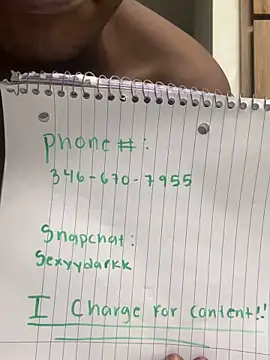 Phone #:
346-670-7955
Snapchat:
Sexyydarkk
I Charge For Content!!